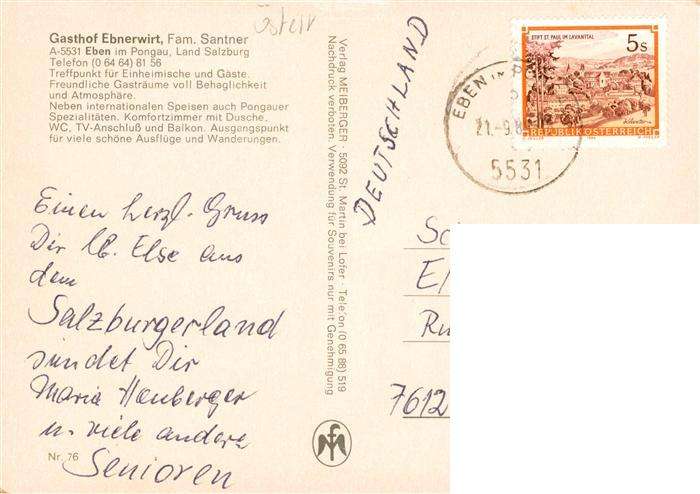 Österr
Gasthof Ebnerwirt, Fam. Santner
A-5531 Eben im Pongau, Land Salzburg
Telefon (0 64 64) 81 56
Treffpunkt für Einheimische und Gäste.
Freundliche Gasträume voll Behaglichkeit
und Atmosphäre.
Neben internationalen Speisen auch Pongauer
Spezialitäten. Komfortzimmer mit Dusche,
WC, TV-Anschluß und Balkon. Ausgangspunkt
für viele schöne Ausflüge und Wanderungen.
Einen herzl. Gruss
Dir lb. Else aus
dem
Salzburgerland
sendet Dir
Maria Hauberger
u. viele andere
Senioren
Nr. 76
Verlag MEIBERGER · 5092 St. Martin bei Lofer · Telefon (0 65 88) 519
Nachdruck verboten. Verwendung für Souvenirs nur mit Genehmigung
DEUTSCHLAND
EBEN IM P
21.-9.8
5531
STIFT ST. PAUL IM LAVANTTAL
5 S
REPUBLIK ÖSTERREICH
Sc
El
Ru
7612